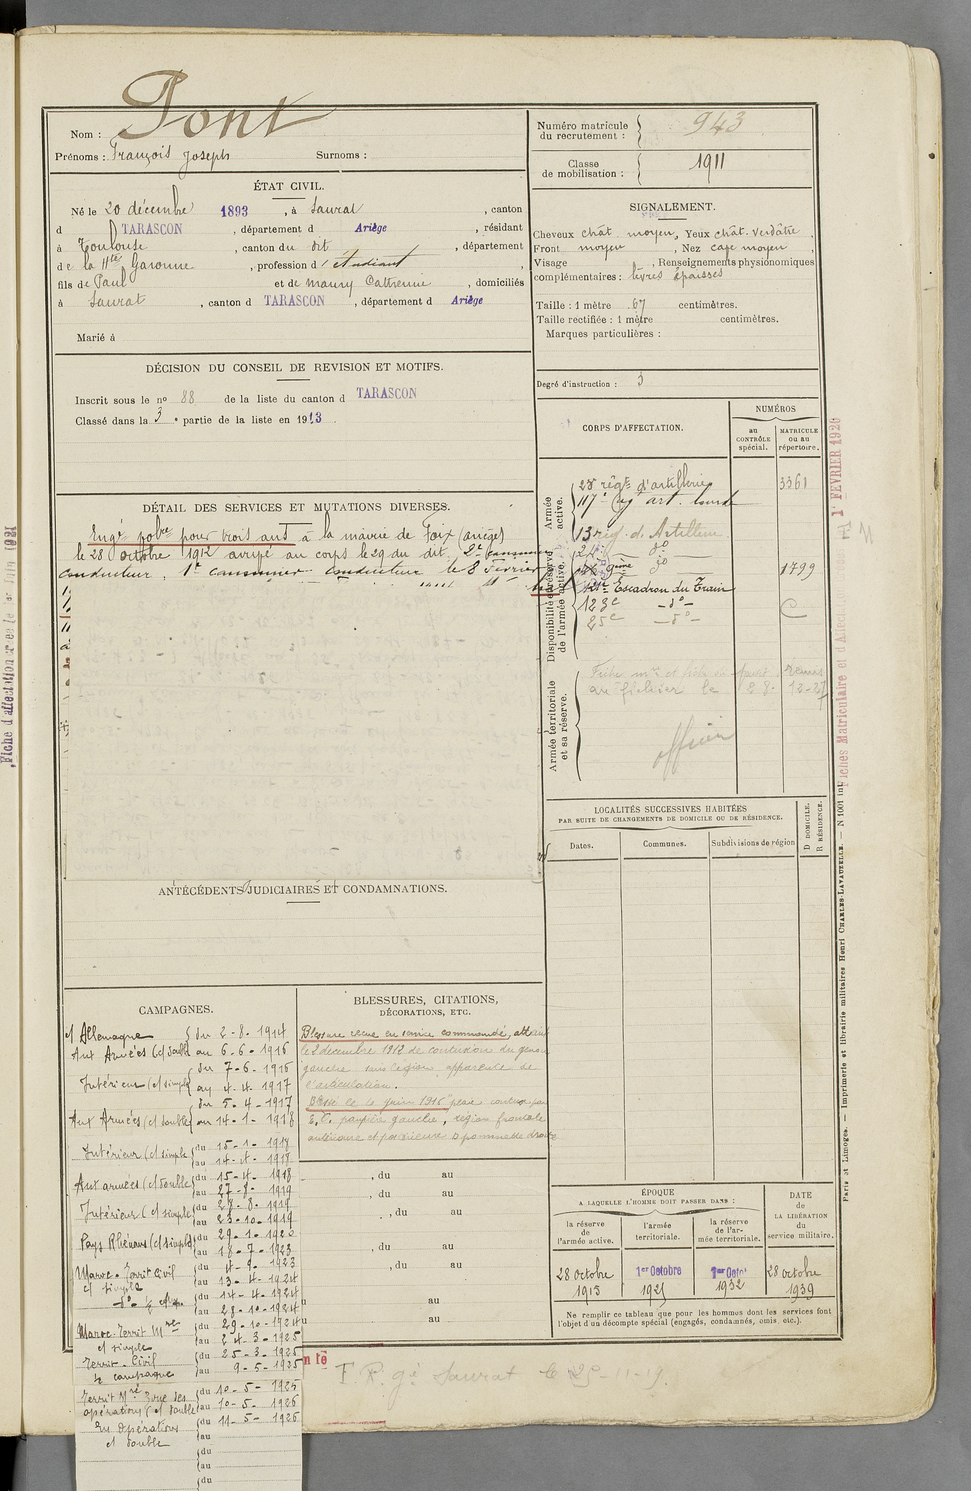 Pont
Nom :
Prénoms : François Joseph Surnoms :
Numéro matricule du recrutement : 943
Classe de mobilisation : 1911
ÉTAT CIVIL.
Né le 20 décembre 1893, à Saurat, canton
d TARASCON, département d Ariège, résidant
à Toulouse, canton du dit, département
de la Hte Garonne, profession d'étudiant
fils de Paul et de Maury Catherine, domiciliés
à Saurat, canton d TARASCON, département d Ariège
Marié à
SIGNALEMENT.
Cheveux chât moyen, Yeux chât. verdâtre,
Front moyen, Nez cave moyen
Visage , Renseignements physionomiques
complémentaires : lèvres épaisses
Taille : 1 mètre 67 centimètres.
Taille rectifiée : 1 mètre centimètres.
Marques particulières :
Degré d'instruction : 3
DÉCISION DU CONSEIL DE REVISION ET MOTIFS.
Inscrit sous le no 88 de la liste du canton d TARASCON
Classé dans la 3 e partie de la liste en 1913.
CORPS D'AFFECTATION.
NUMÉROS
au CONTRÔLE spécial.
MATRICULE ou au répertoire.
Armée active.
23e régt d'artillerie 3361
117e Rég art. lourde
Disponibilité et réserve de l'armée active.
13 rég. d. Artillerie
do
9ème do 1799
Escadron du Train
123e -do-
25e -do-
Armée territoriale et sa réserve.
au fichier le 28.12-27
officier
DÉTAIL DES SERVICES ET MUTATIONS DIVERSES.
Engé volre pour trois ans à la mairie de Foix (Ariège)
le 28 octobre 1912 arrivé au corps le 29 du dit. 2e canonnier
conducteur, 1er canonnier conducteur le 8 Février
ANTÉCÉDENTS JUDICIAIRES ET CONDAMNATIONS.
LOCALITÉS SUCCESSIVES HABITÉES
PAR SUITE DE CHANGEMENTS DE DOMICILE OU DE RÉSIDENCE.
Dates. Communes. Subdivisions de région
D DOMICILE. R RÉSIDENCE.
CAMPAGNES.
ct Allemagne du 2-8-1914
Aux Armées (ct double au 6-6-1916
du 7-6-1916
Intérieur (ct simple au 4-4-1917
du 5-4-1917
Aux Armées (ct double au 14-1-1918
Intérieur (ct simple du 15-1-1918
au 14-4-1918
Aux armées (ct double du 15-4-1918
au 27-8-1919
Intérieur (ct simple du 28-8-1919
au 23-10-1919
Pays Rhénans (ct simple du 29-1-1920
au 18-7-1923
Maroc. Territ Civil du 4-9-1923
ct simple au 13-4-1924
-do- ½ du 14-4-1924
au 28-10-1924
Maroc. Territ Mre du 29-10-1924
ct simple au 24-3-1925
Territ. Civil du 25-3-1925
½ campagne au 9-5-1925
Territ Mre Zone des du 10-5-1925
opérations (ct double au 10-5-1926
En Opérations du 11-5-1926
ct double au
du
au
du
BLESSURES, CITATIONS,
DÉCORATIONS, ETC.
Blessure reçue en service commandé, atteint
le 2 décembre 1912 de contusion du genou
gauche sans lésion apparente de
l'articulation.
Blessé le 6 juin 1916 plaie contuse par
E.O. paupière gauche, région frontale
antérieure et pommette droite
, du au
, du au
, du au
, du au
, du au
au
au
ÉPOQUE
A LAQUELLE L'HOMME DOIT PASSER DANS :
la réserve de l'armée active.
l'armée territoriale.
la réserve de l'armée territoriale.
DATE de LA LIBÉRATION du service militaire.
28 octobre 1915
1er Octobre 1925
1er Octo 1932
28 octobre 1939
Ne remplir ce tableau que pour les hommes dont les services font
l'objet d'un décompte spécial (engagés, condamnés, omis etc.).
F. R. gé Saurat le 25-11-19.
Paris et Limoges. — Imprimerie et librairie militaires Henri CHARLES-LAVAUZELLE. — N 1001 int
1er FÉVRIER 1926
Fiches Matriculaire et d'Affect